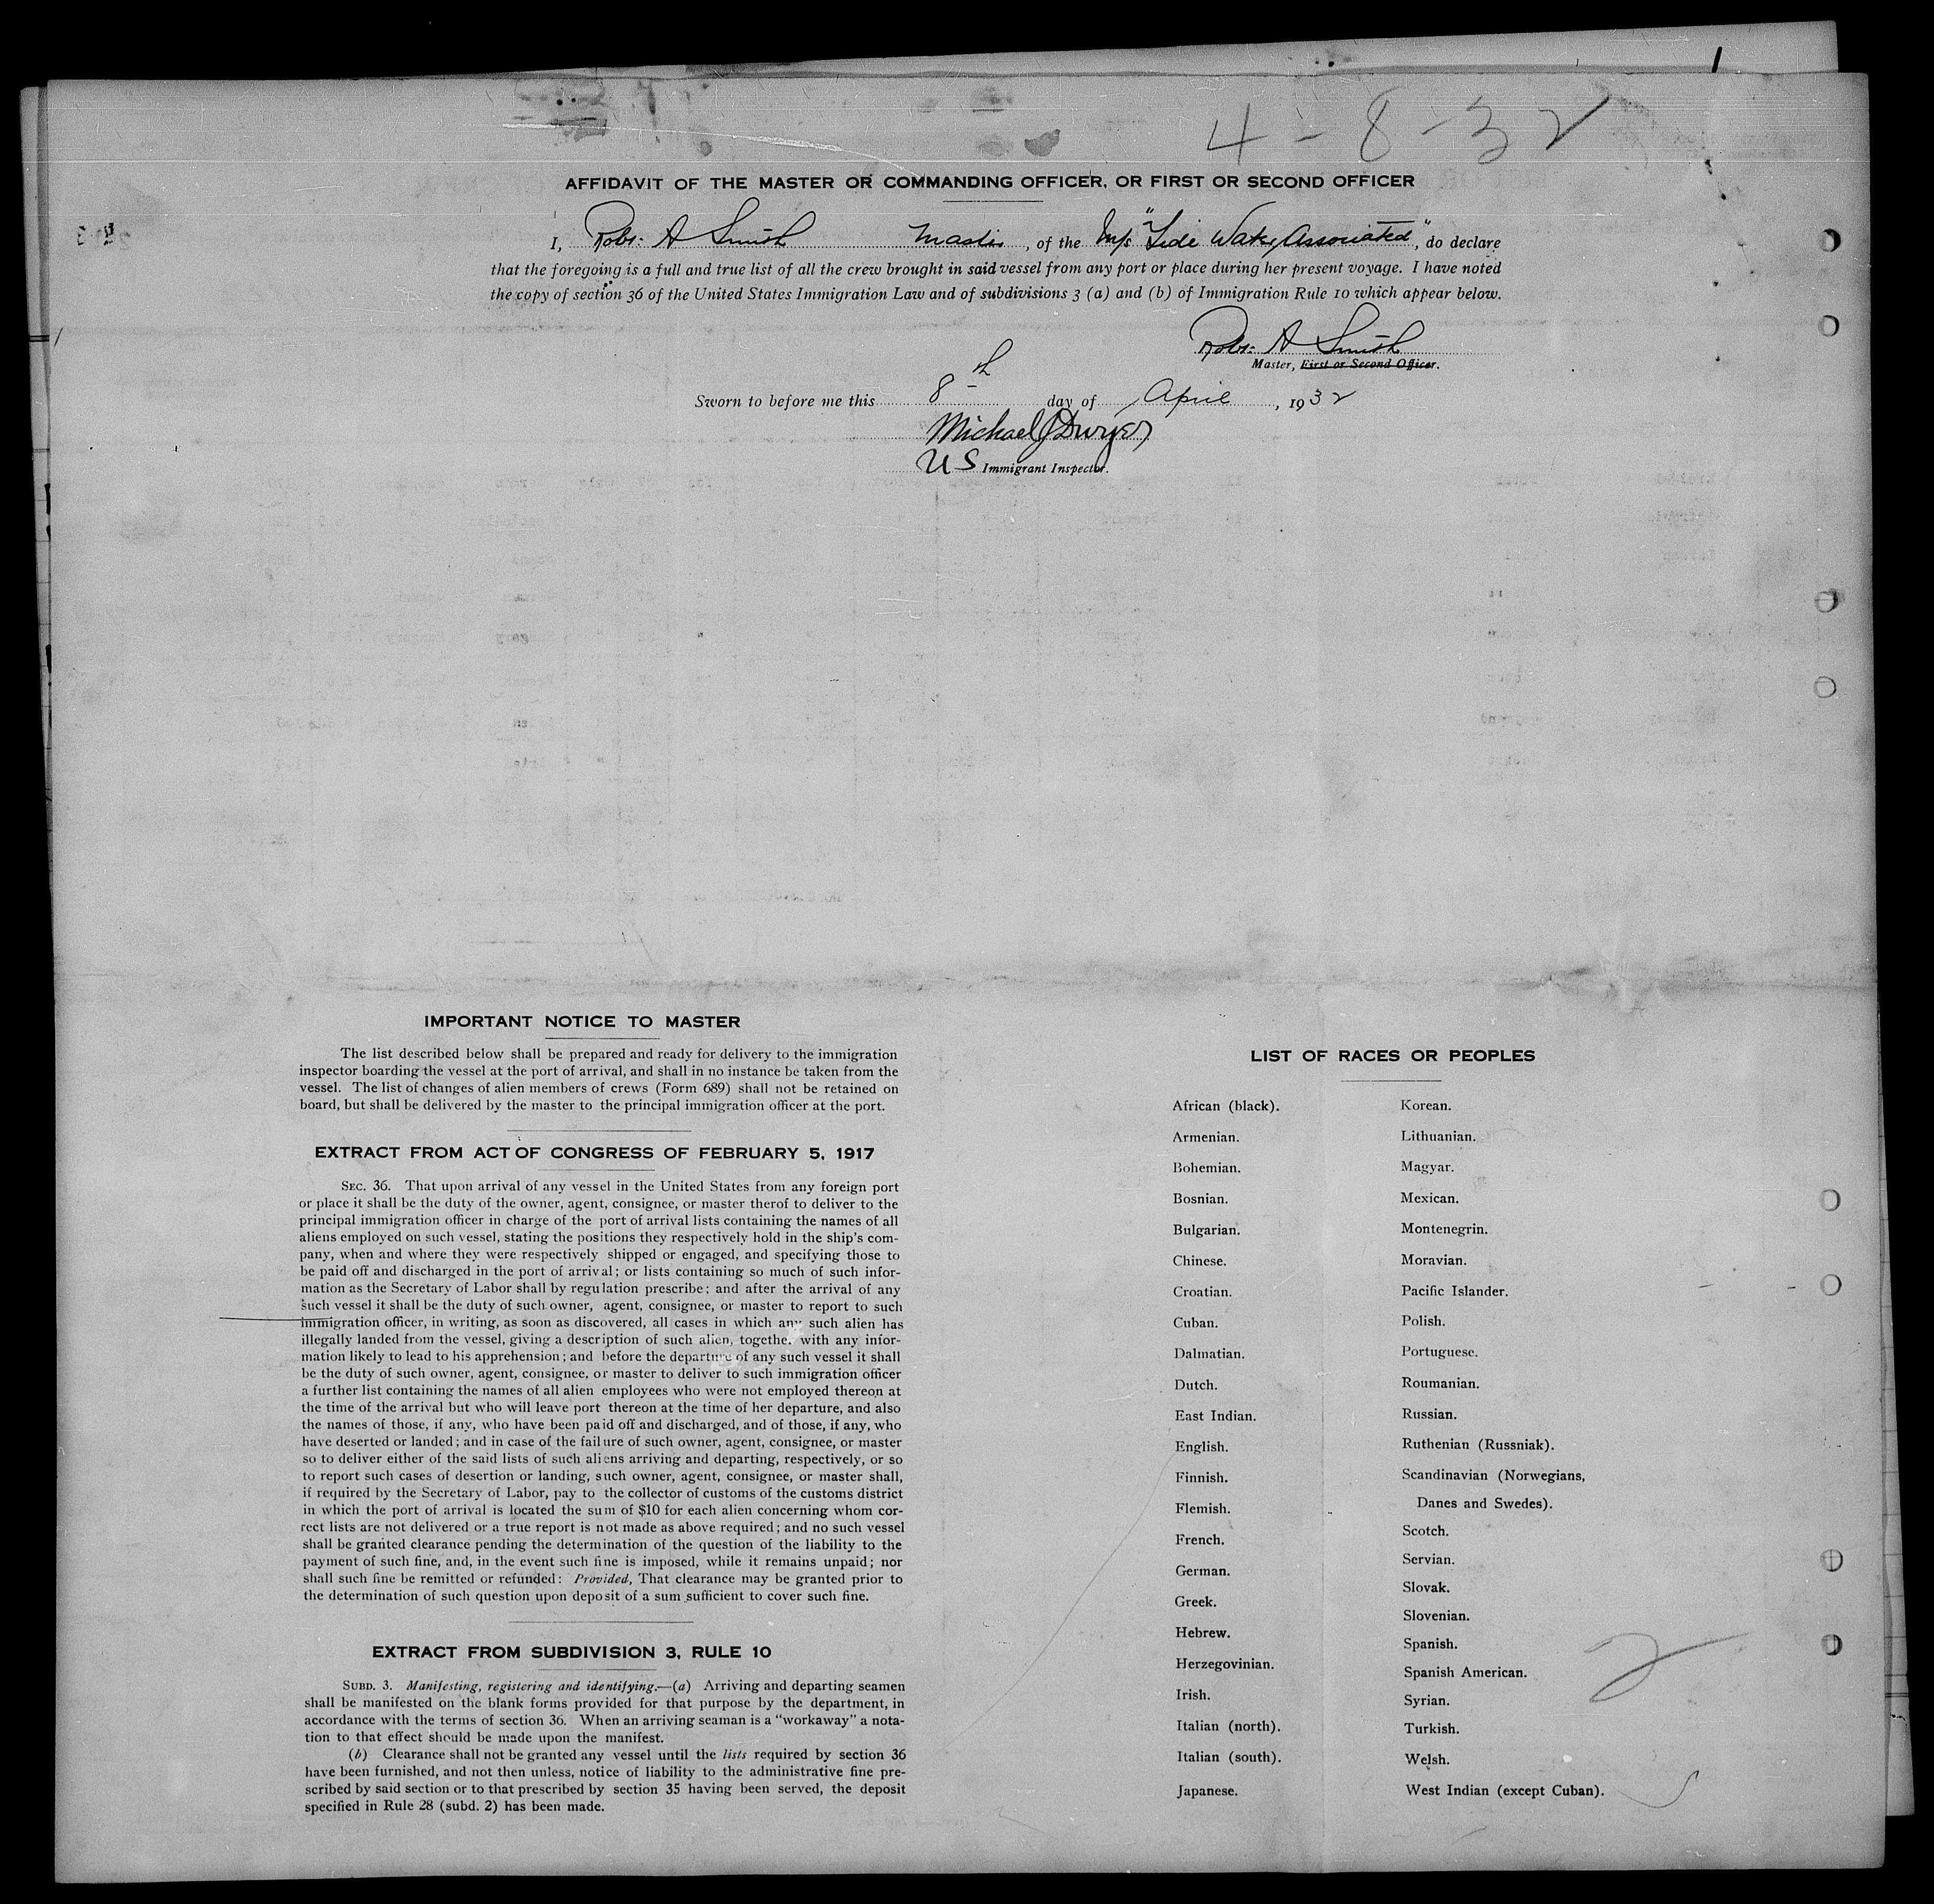 4-8-32
AFFIDAVIT OF THE MASTER OR COMMANDING OFFICER, OR FIRST OR SECOND OFFICER
I, Robt. A Smith Master, of the M/s "Tide Water Associated", do declare
that the foregoing is a full and true list of all the crew brought in said vessel from any port or place during her present voyage. I have noted
the copy of section 36 of the United States Immigration Law and of subdivisions 3 (a) and (b) of Immigration Rule 10 which appear below.
Robt. A Smith
Master, First or Second Officer.
Sworn to before me this 8th day of April, 1932
Michael J Dwyer
US Immigrant Inspector.
IMPORTANT NOTICE TO MASTER
The list described below shall be prepared and ready for delivery to the immigration
inspector boarding the vessel at the port of arrival, and shall in no instance be taken from the
vessel. The list of changes of alien members of crews (Form 689) shall not be retained on
board, but shall be delivered by the master to the principal immigration officer at the port.
EXTRACT FROM ACT OF CONGRESS OF FEBRUARY 5, 1917
SEC. 36. That upon arrival of any vessel in the United States from any foreign port
or place it shall be the duty of the owner, agent, consignee, or master therof to deliver to the
principal immigration officer in charge of the port of arrival lists containing the names of all
aliens employed on such vessel, stating the positions they respectively hold in the ship's com-
pany, when and where they were respectively shipped or engaged, and specifying those to
be paid off and discharged in the port of arrival; or lists containing so much of such infor-
mation as the Secretary of Labor shall by regulation prescribe; and after the arrival of any
such vessel it shall be the duty of such owner, agent, consignee, or master to report to such
immigration officer, in writing, as soon as discovered, all cases in which any such alien has
illegally landed from the vessel, giving a description of such alien, together with any infor-
mation likely to lead to his apprehension; and before the departure of any such vessel it shall
be the duty of such owner, agent, consignee, or master to deliver to such immigration officer
a further list containing the names of all alien employees who were not employed thereon at
the time of the arrival but who will leave port thereon at the time of her departure, and also
the names of those, if any, who have been paid off and discharged, and of those, if any, who
have deserted or landed; and in case of the failure of such owner, agent, consignee, or master
so to deliver either of the said lists of such aliens arriving and departing, respectively, or so
to report such cases of desertion or landing, such owner, agent, consignee, or master shall,
if required by the Secretary of Labor, pay to the collector of customs of the customs district
in which the port of arrival is located the sum of $10 for each alien concerning whom cor-
rect lists are not delivered or a true report is not made as above required; and no such vessel
shall be granted clearance pending the determination of the question of the liability to the
payment of such fine, and, in the event such fine is imposed, while it remains unpaid; nor
shall such fine be remitted or refunded: Provided, That clearance may be granted prior to
the determination of such question upon deposit of a sum sufficient to cover such fine.
EXTRACT FROM SUBDIVISION 3, RULE 10
SUBD. 3. Manifesting, registering and identifying.—(a) Arriving and departing seamen
shall be manifested on the blank forms provided for that purpose by the department, in
accordance with the terms of section 36. When an arriving seaman is a "workaway" a nota-
tion to that effect should be made upon the manifest.
(b) Clearance shall not be granted any vessel until the lists required by section 36
have been furnished, and not then unless, notice of liability to the administrative fine pre-
scribed by said section or to that prescribed by section 35 having been served, the deposit
specified in Rule 28 (subd. 2) has been made.
LIST OF RACES OR PEOPLES
African (black).
Armenian.
Bohemian.
Bosnian.
Bulgarian.
Chinese.
Croatian.
Cuban.
Dalmatian.
Dutch.
East Indian.
English.
Finnish.
Flemish.
French.
German.
Greek.
Hebrew.
Herzegovinian.
Irish.
Italian (north).
Italian (south).
Japanese.
Korean.
Lithuanian.
Magyar.
Mexican.
Montenegrin.
Moravian.
Pacific Islander.
Polish.
Portuguese.
Roumanian.
Russian.
Ruthenian (Russniak).
Scandinavian (Norwegians,
Danes and Swedes).
Scotch.
Servian.
Slovak.
Slovenian.
Spanish.
Spanish American.
Syrian.
Turkish.
Welsh.
West Indian (except Cuban).
2